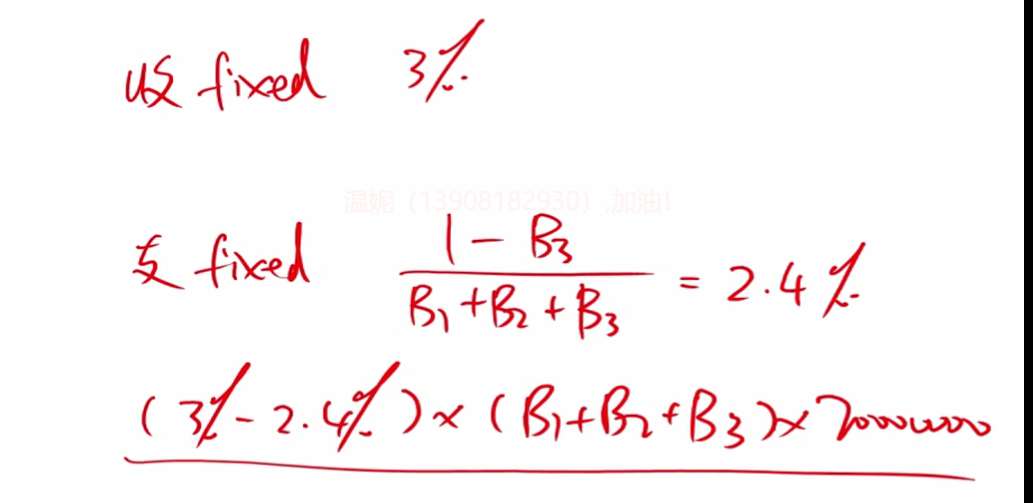 收 fixed 3%
温妮（13908182930）,加油!
支 fixed (1 - B₃) / (B₁ + B₂ + B₃) = 2.4%
(3% - 2.4%) × (B₁ + B₂ + B₃) ×